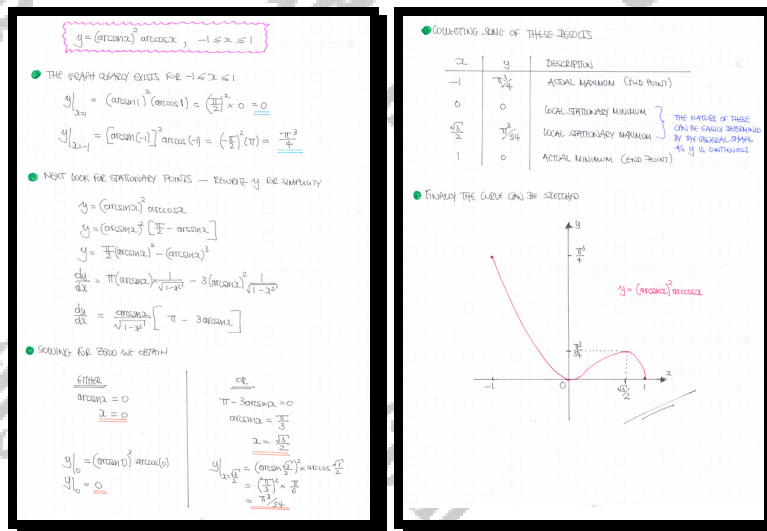 y = (arcsinx)² arccosx , -1 ≤ x ≤ 1
THE GRAPH CLEARLY EXISTS FOR -1 ≤ x ≤ 1
y|x=1 = (arcsin1)² (arccos1) = (π/2)² × 0 = 0
y|x=-1 = [arcsin(-1)]² arccos(-1) = (-π/2)² (π) = π³/4
NEXT LOOK FOR STATIONARY POINTS — REWRITE y FOR SIMPLICITY
y = (arcsinx)² arccosx
y = (arcsinx)² [π/2 - arcsinx]
y = π/2 (arcsinx)² - (arcsinx)³
dy/dx = π(arcsinx) × 1/√(1-x²) - 3(arcsinx)² 1/√(1-x²)
dy/dx = arcsinx/√(1-x²) [π - 3arcsinx]
SOLVING FOR ZERO WE OBTAIN
EITHER
arcsinx = 0
x = 0
y|0 = (arcsin0)² arccos(0)
y|0 = 0
OR
π - 3arcsinx = 0
arcsinx = π/3
x = √3/2
y|x=√3/2 = (arcsin √3/2)² × arccos √3/2
= (π/3)² × π/6
= π³/54
COLLECTING SOME OF THESE RESULTS
x y DESCRIPTION
-1 π³/4 ACTUAL MAXIMUM (END POINT)
0 0 LOCAL STATIONARY MINIMUM
√3/2 π³/54 LOCAL STATIONARY MAXIMUM
1 0 ACTUAL MINIMUM (END POINT)
THE NATURE OF THESE
CAN BE EASILY DETERMINED
BY THE GENERAL SHAPE
AS y IS CONTINUOUS
FINALLY THE CURVE CAN BE SKETCHED
y
π³/4
y = (arcsinx)² arccosx
π³/54
-1 0 √3/2 1 x